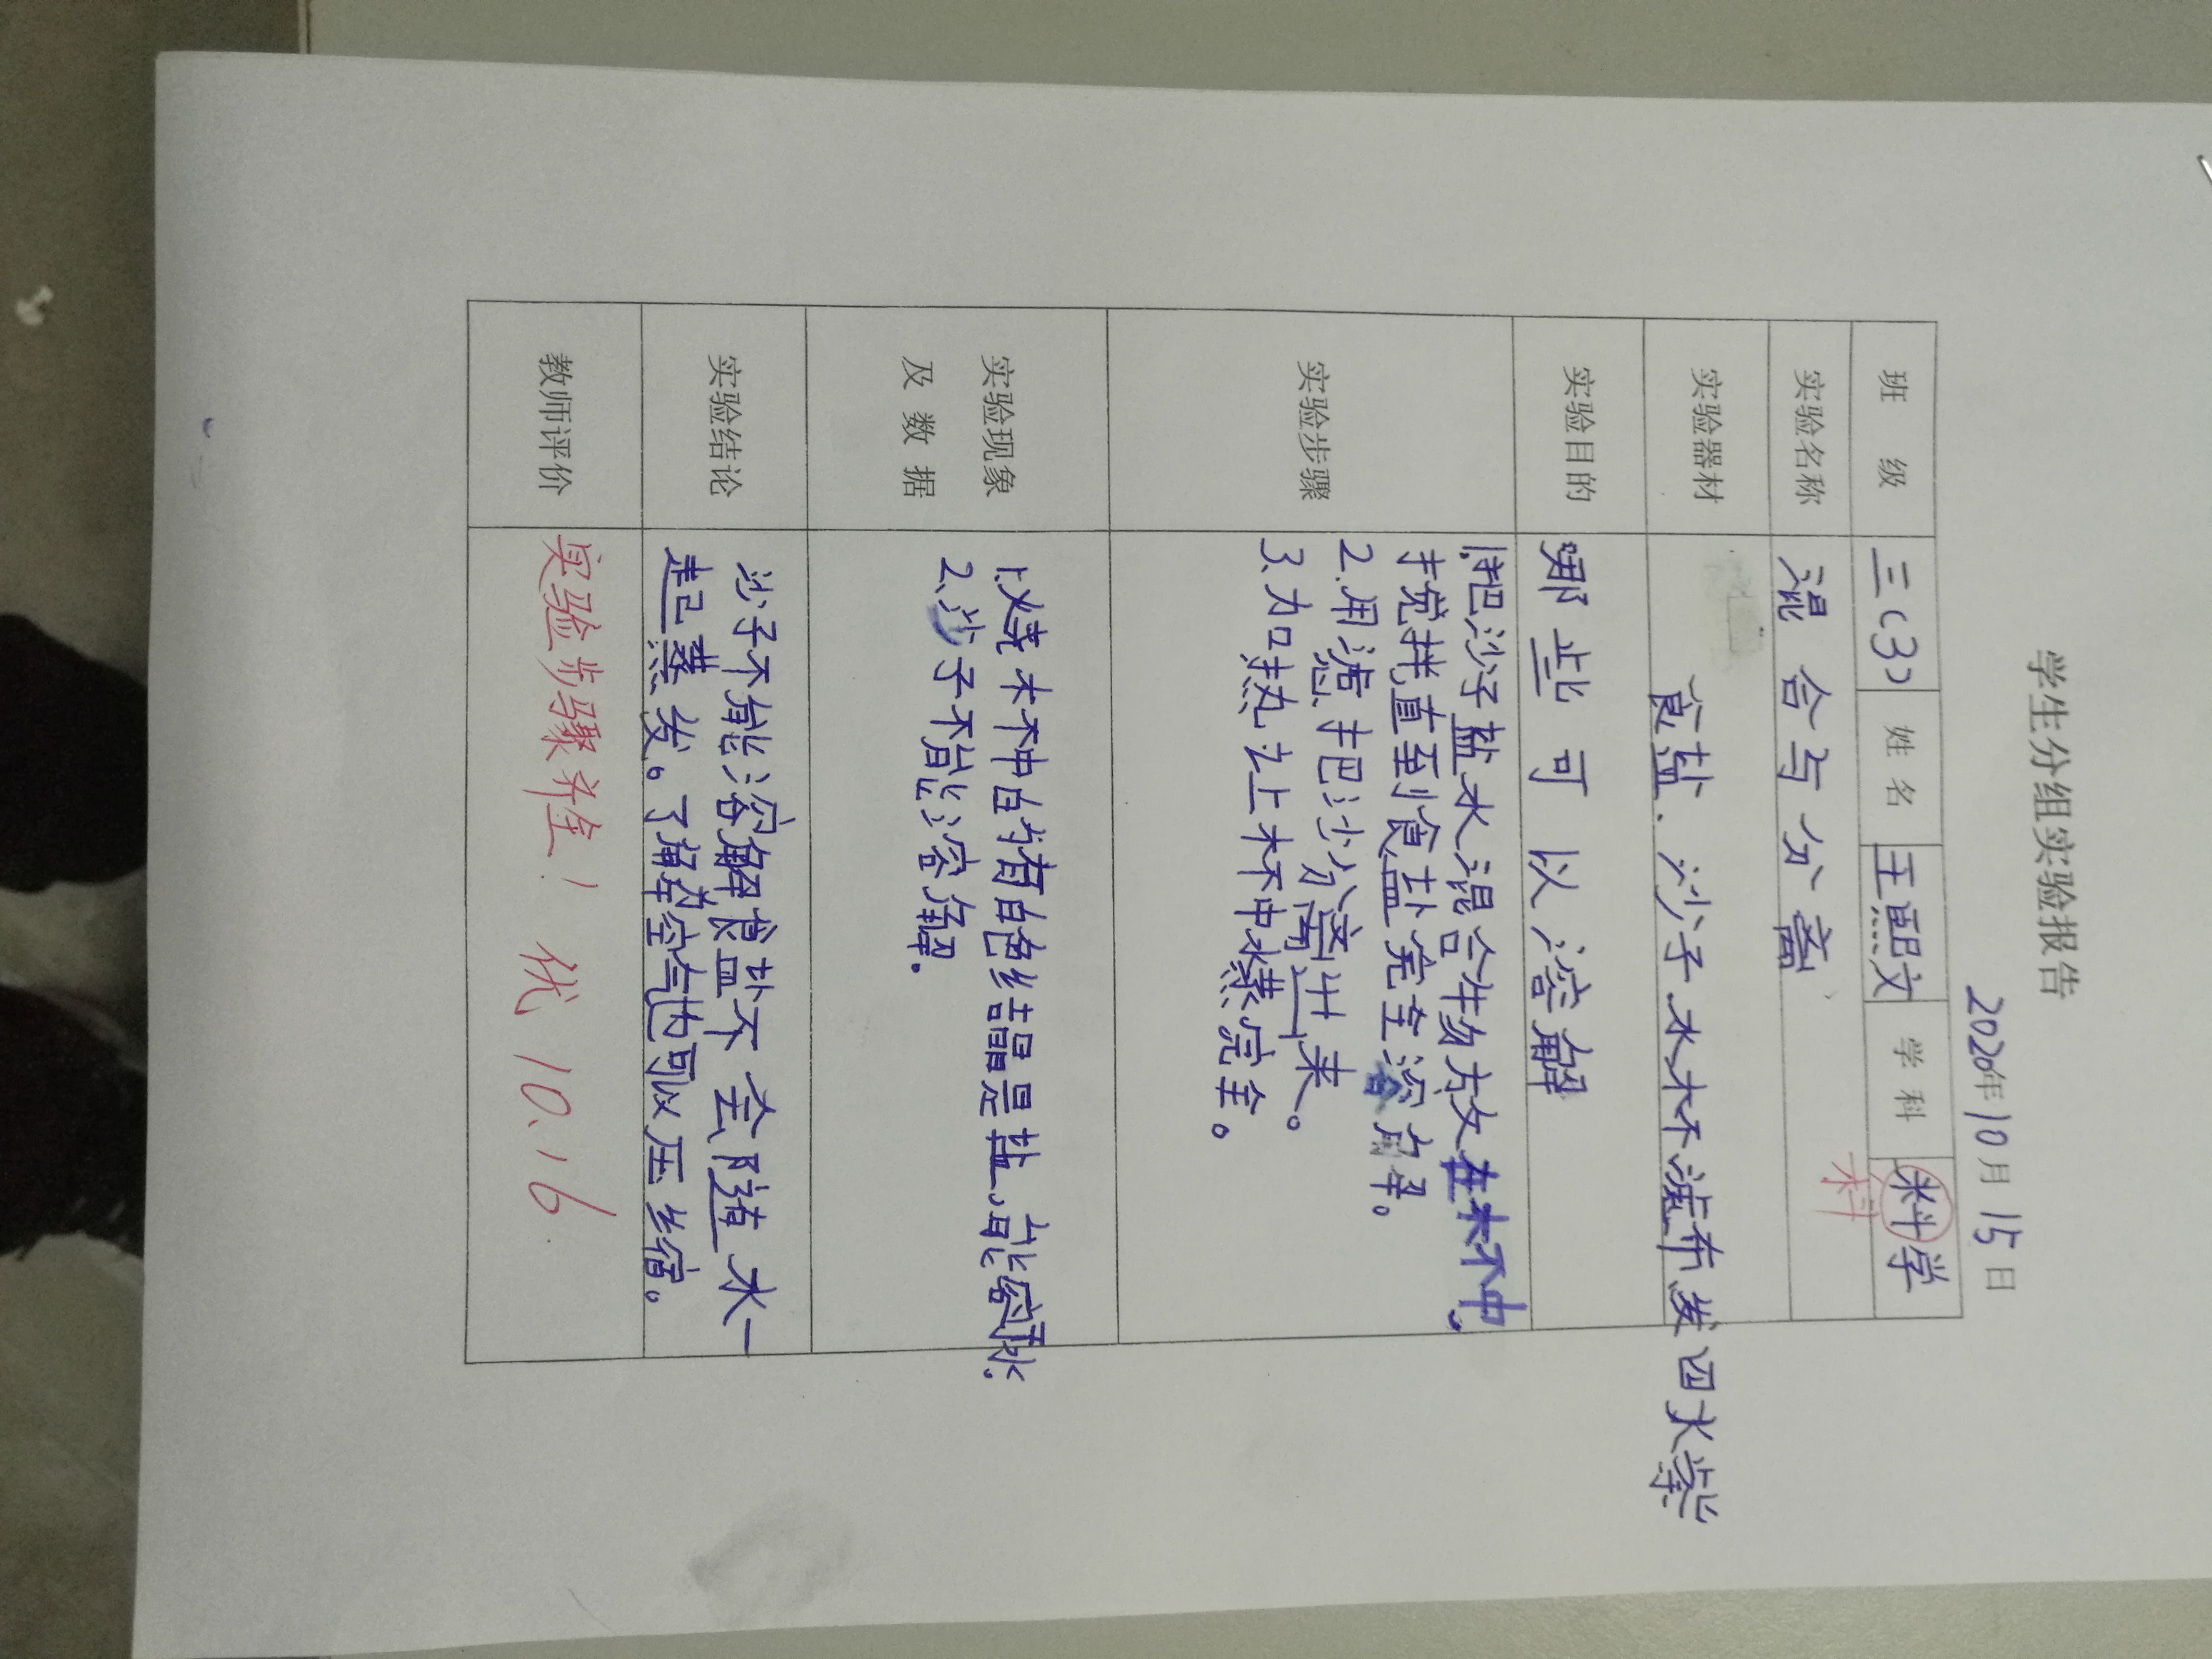 学生分组实验报告
2020年10月15日
班级 三(3) 姓名 王熙文 学科 料学
科
实验名称 混合与分离
实验器材 食盐、沙子水杯滤布发四火柴
实验目的 哪些可以溶解
实验步骤
1.把沙子盐水混合物放在杯中,
搅拌直至到食盐完全溶解。
2.用滤 把沙分离出来。
3.加热让杯中水蒸完全。
实验现象
及数据
1.烧杯中的有白色结晶是盐,能溶 水.
2.沙子不能溶解.
实验结论
沙子不能溶解食盐不会随水一
起蒸发。了解 空气也可以压缩。
教师评价
实验步骤齐全! 优 10.16